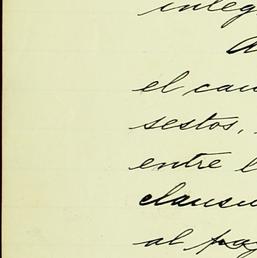 integ
A
el cau
sestos,
entre l
clausu
al pag